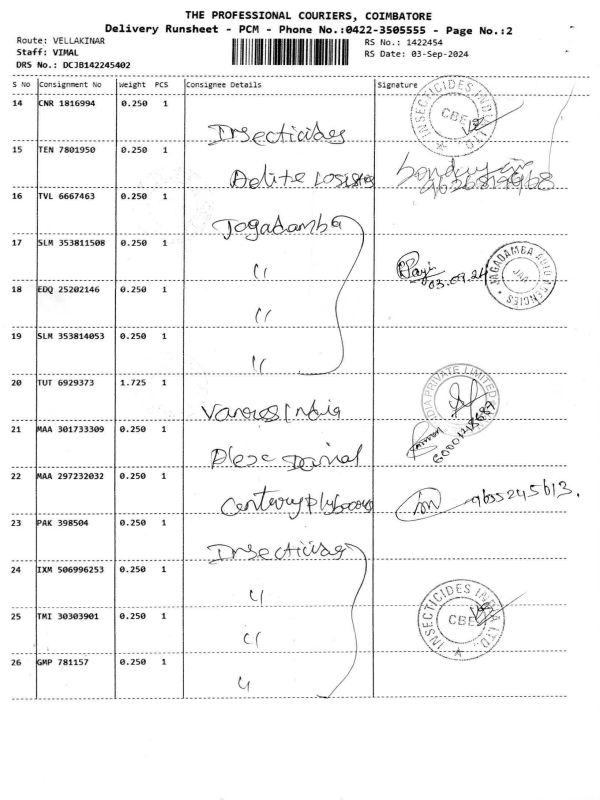 THE PROFESSIONAL COURIERS, COIMBATORE
Delivery Runsheet - PCM - Phone No.:0422-3505555 - Page No.:2
Route: VELLAKINAR RS No.: 1422454
Staff: VIMAL RS Date: 03-Sep-2024
DRS No.: DCJB142245402
S No Consignment No Weight PCS Consignee Details Signature
14 CNR 1816994 0.250 1 Insecticides
INSECTICIDES INDIA LTD. CBE
15 TEN 7801950 0.250 1
16 TVL 6667463 0.250 1 Jogadamba
17 SLM 353811508 0.250 1 "
03.09.24
JAGADAMBA AUTO AGENCIES JAA
18 EDQ 25202146 0.250 1 "
19 SLM 353814053 0.250 1 "
20 TUT 6929373 1.725 1
DIA PRIVATE LIMITED
21 MAA 301733309 0.250 1
22 MAA 297232032 0.250 1 9655245613.
23 PAK 398504 0.250 1
24 IXM 506996253 0.250 1 "
25 TMI 30303901 0.250 1 "
INSECTICIDES INDIA LTD. CBE
26 GMP 781157 0.250 1 "